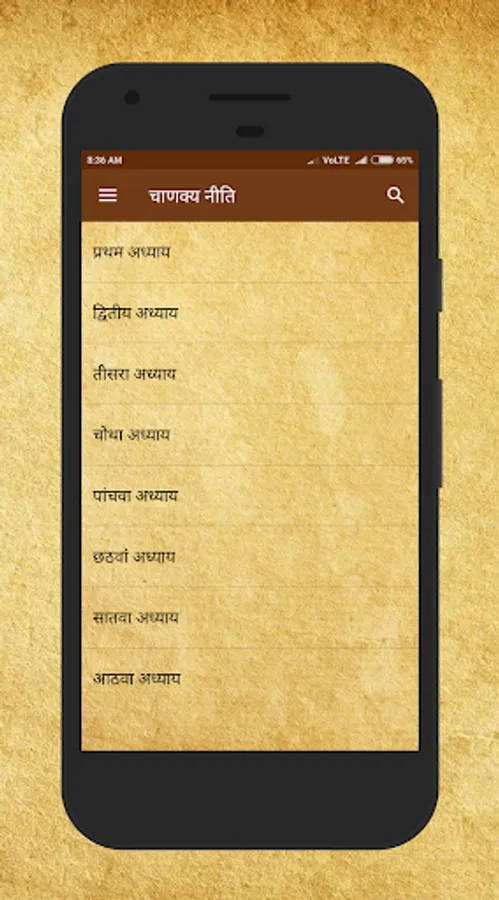 8:36 AM VoLTE 65%
चाणक्य नीति
प्रथम अध्याय
द्वितीय अध्याय
तीसरा अध्याय
चोथा अध्याय
पांचवा अध्याय
छठवां अध्याय
सातवा अध्याय
आठवा अध्याय